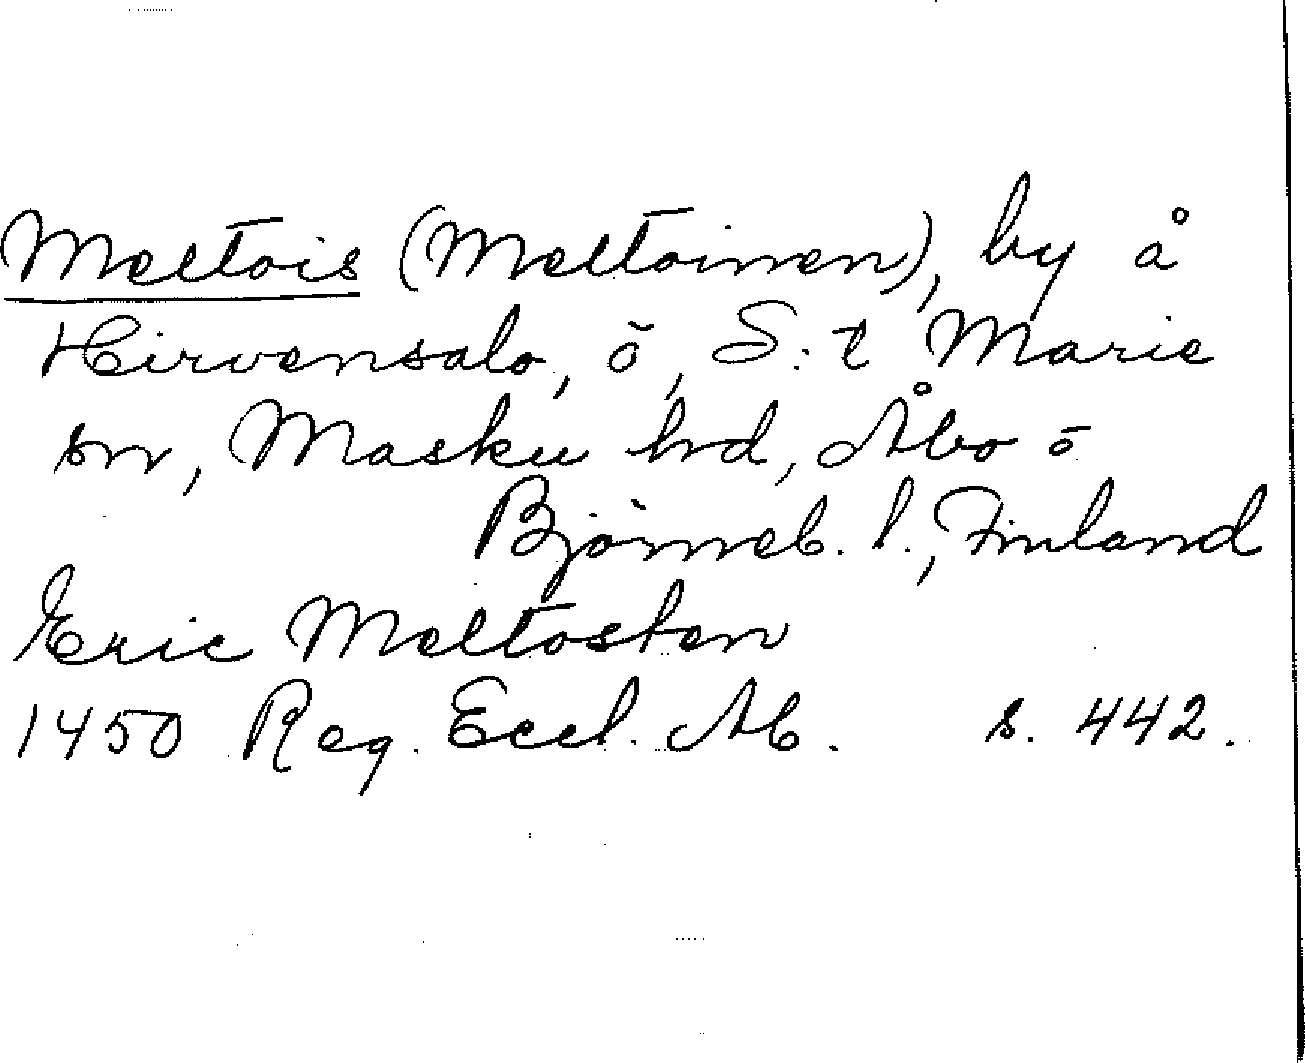 Meltois (Meltoinen), by å
Hirvensalo, ö, S:t Marie
sn, Masku hd, Åbo o
Björneb. l., Finland
Eric Meltosten
1450 Reg. Eccl. Ab. s. 442.